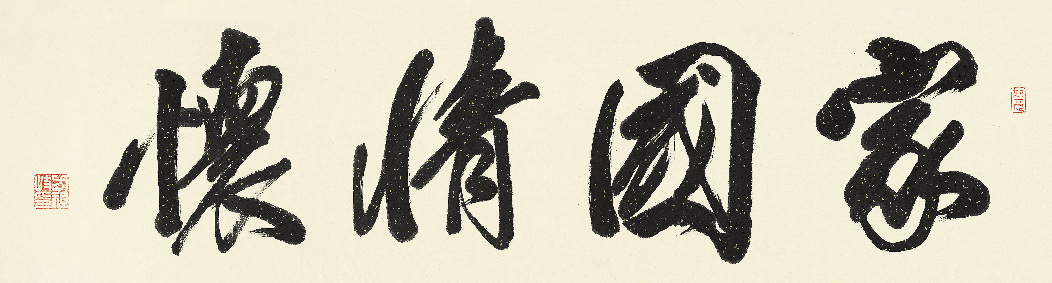 家國情懷